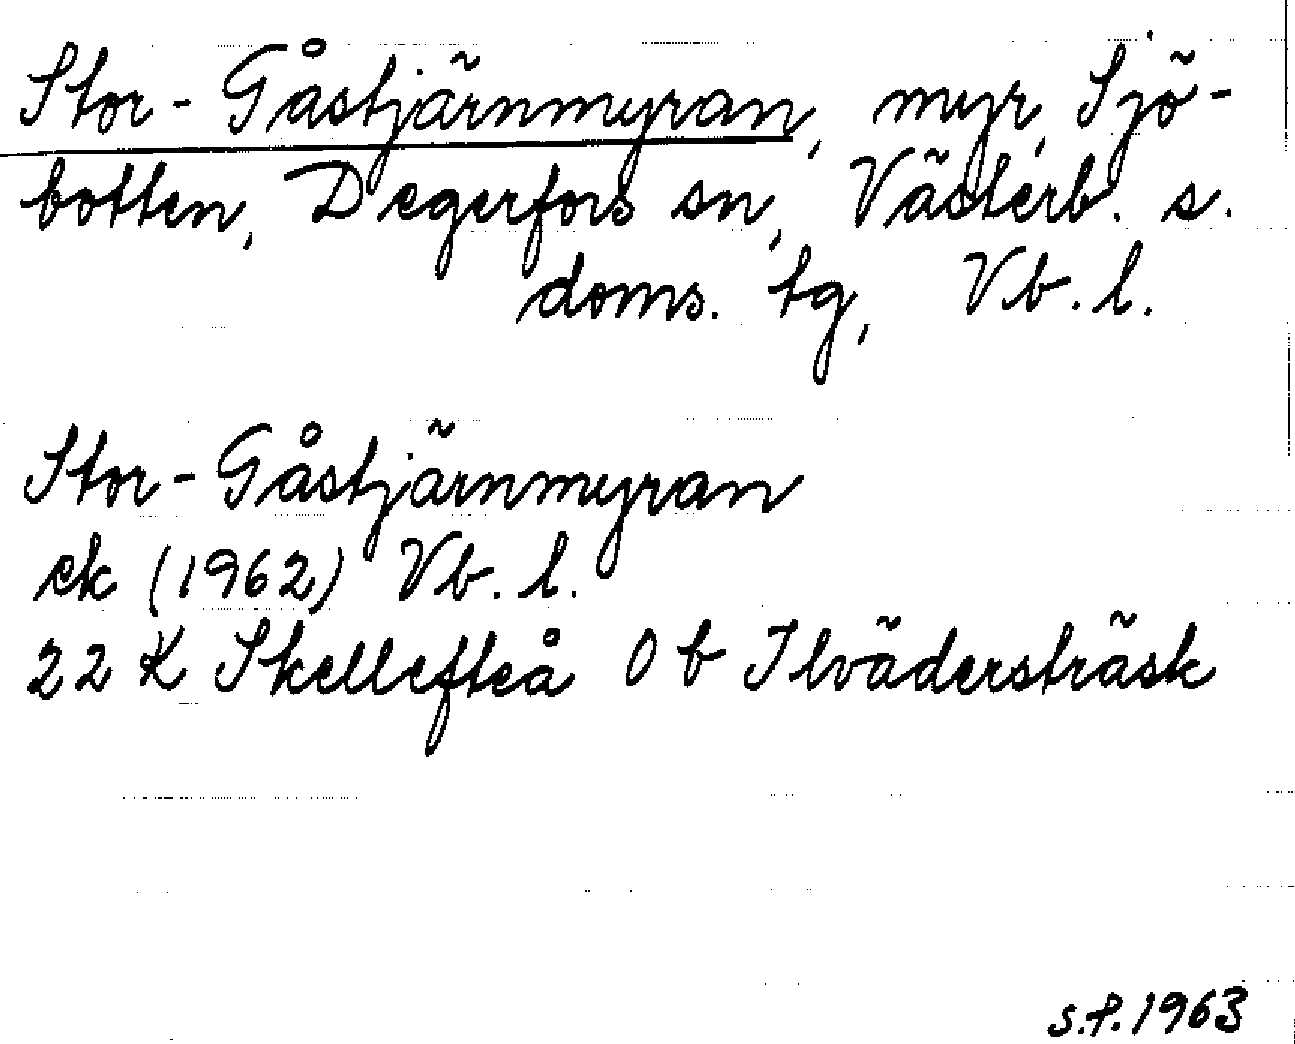 Stor-Gåstjärnmyran, myr, Sjö-
botten, Degerfors sn, Västerb. s.
doms. tg, Vb. l.
Stor-Gåstjärnmyran
ek (1962) Vb. l.
22 K Skellefteå 0 b Ilvädersträsk
s.P. 1963